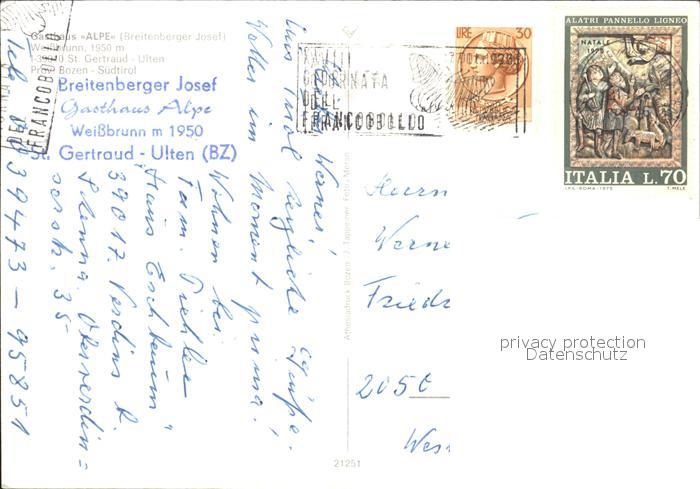 Gasthaus »ALPE« (Breitenberger Josef)
Weißbrunn, 1950 m
I-39010 St. Gertraud - Ulten
Prov. Bozen - Südtirol
Breitenberger Josef
Gasthaus Alpe
Weißbrunn m 1950
St. Gertraud - Ulten (BZ)
XVIII
GIORNATA
DEL
FRANCOBOLLO
LIRE 30
ALATRI PANNELLO LIGNEO
NATALE
1975
ITALIA L.70
I.P.S.-ROMA-1975 T. MELE
Werner!
herzliche Grüße.
Wetter im Moment prima!
Wohnen bei
Fam.
"Haus Eschbaum"
39017 Verdins b.
Schenna. Oberverdin=
serstr. 35
0039473-95851
Herrn
Werne
Friedr
2050
Wes
privacy protection
Datenschutz
21251